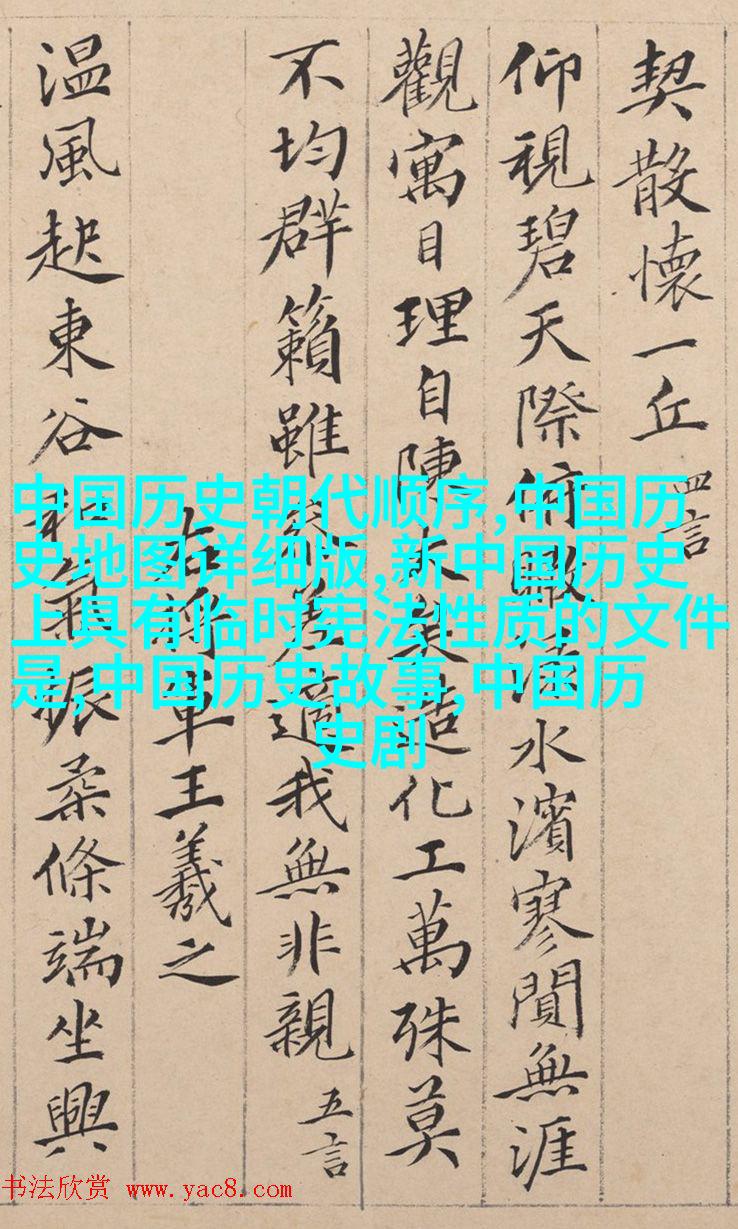 契散懷一丘 四言
仰視碧天際俯瞰淥水濱寥閴無涯
觀寓目理自陳大矣造化工萬殊莫
不均群籟雖參差適我無非親 五言
右將軍王羲之
温風起東谷和氣振柔條端坐興
中国历史朝代顺序,中国历
史地图详细版,新中国历史
上具有临时宪法性质的文件
是,中国历史故事,中国历
史剧
书法欣赏 www.yac8.com